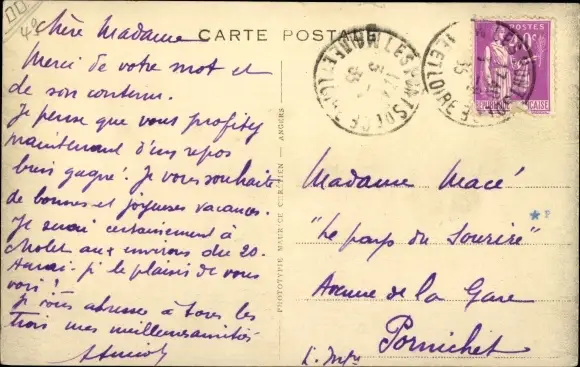 chère Madame
Merci de votre mot et
de son contenu.
Je pense que vous profitez
maintenant d'un repos
bien gagné. Je vous souhaite
de bonnes et joyeuses vacances.
Je serai certainement à
cholet aux environs du 20.
Aurai-je le plaisir de vous
voir?
Je vous adresse à tous les
trois mes meilleures amitiés
CARTE POSTALE
PROTOTYPIE MAURICE CHRÉTIEN — ANGERS
POSTES
Madame Macé
"Le pays du Sourire"
Avenue de la Gare
Pornichet
L. Infre